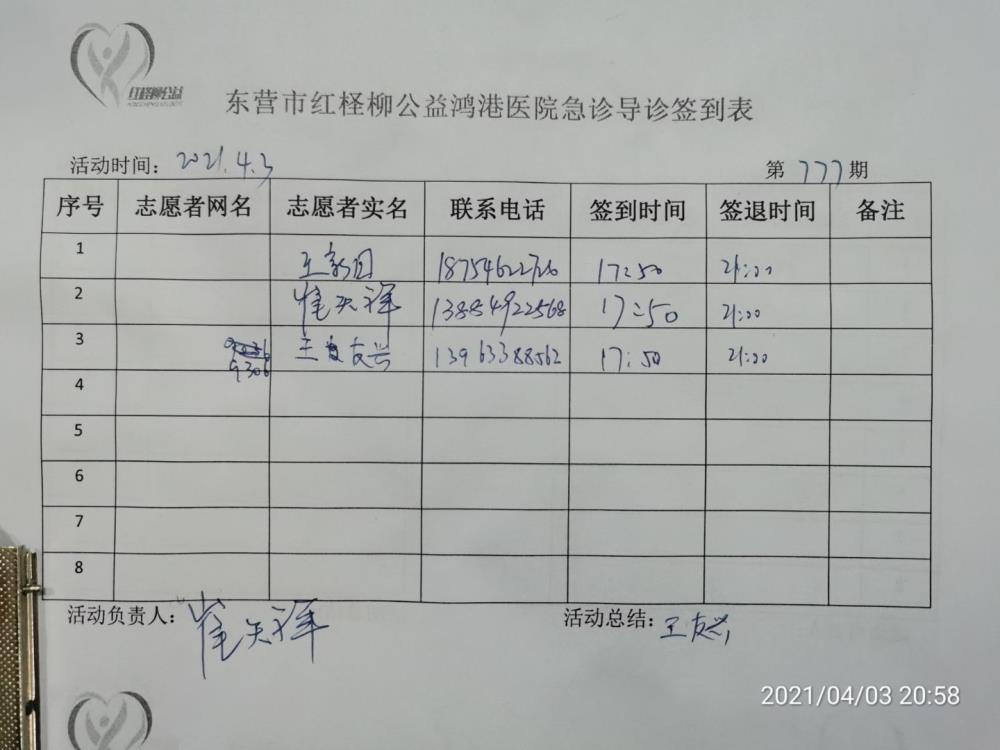 红柽柳公益
东营市红柽柳公益鸿港医院急诊导诊签到表
活动时间：2021.4.3 第777期
序号 志愿者网名 志愿者实名 联系电话 签到时间 签退时间 备注
1 17:50 21:00
2 崔天祥 13884922568 17:50 21:00
3 9306 王友兴 13963388562 17:50 21:00
4
5
6
7
8
活动负责人：崔天祥 活动总结：王友兴
2021/04/03 20:58